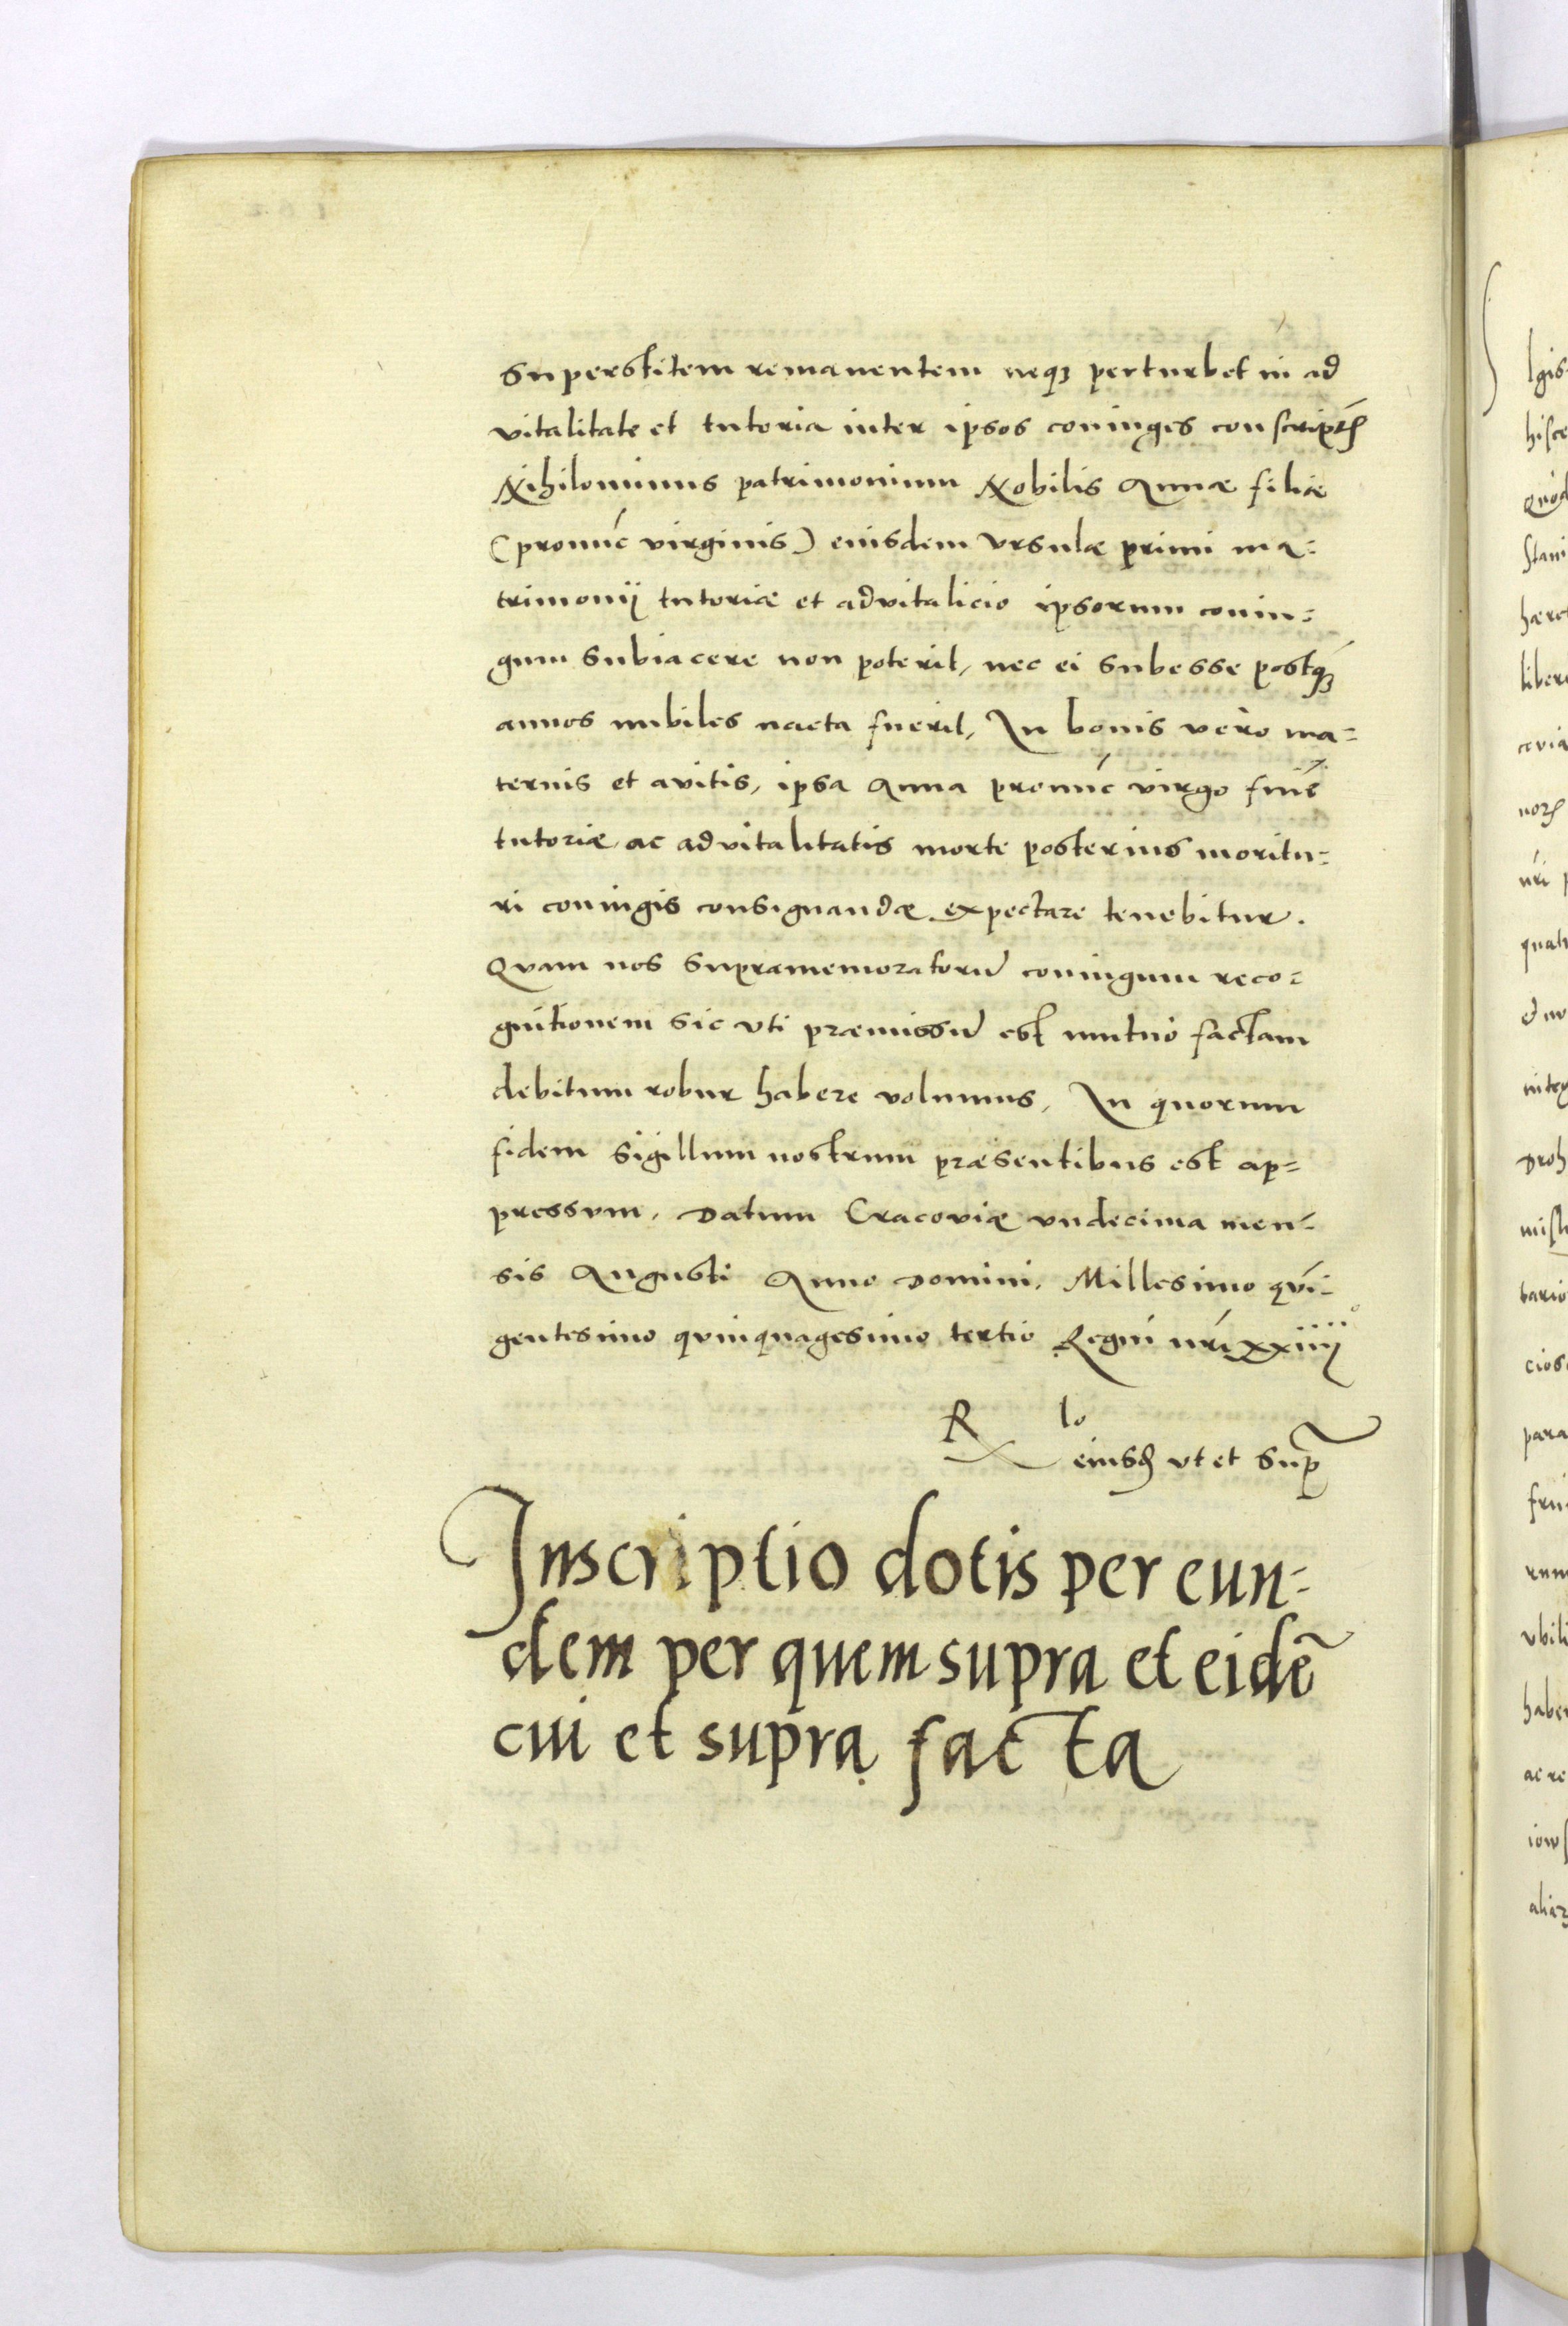 superstitem remanentem neq3 perturbet in ad
vitalitate et tutoria inter ipsos coniuges conscript
Nihilominus patrimonium Nobilis Annæ filiæ
(pronuc virginis) eiusdem Vrsulæ primi ma=
trimonij tutoriæ et advitalicio ipsorum coniu=
gum subiacere non poterit, nec ei subesse postq̃3
annos nubiles nacta fuerit, In bonis verò ma=
ternis et avitis, ipsa Anna pronuc virgo finē
tutoriæ ac advitalitatis morte posterius moritu=
ri coniugis consignandæ expectare tenebitur.
Qvam nos supramemoratorū coniugum reco=
gnitionem sic vti præmissū est mutuò factam
debitum robur habere volumus, In quorum
fidem sigillum nostrum præsentibus est ap=
pressvm, Datum Cracoviæ vndecima men=
sis Augusti Anno Domini, Millesimo qvī=
gentesimo qvinquagesimo tertio Regni nr̃i xxiiij°
R lo
eiusd vt et sup
Inscriptio dotis per eun=
dem per quem supra et eidē
cui et supra facta
lgis
hisce
Qvod
Stani
hæret
liber
covia
nor
nr̃i
quatu
et no
integ
Droh
miste
tario
cios
para
frui
rum
vbili
haber
ac re
iows
aliar